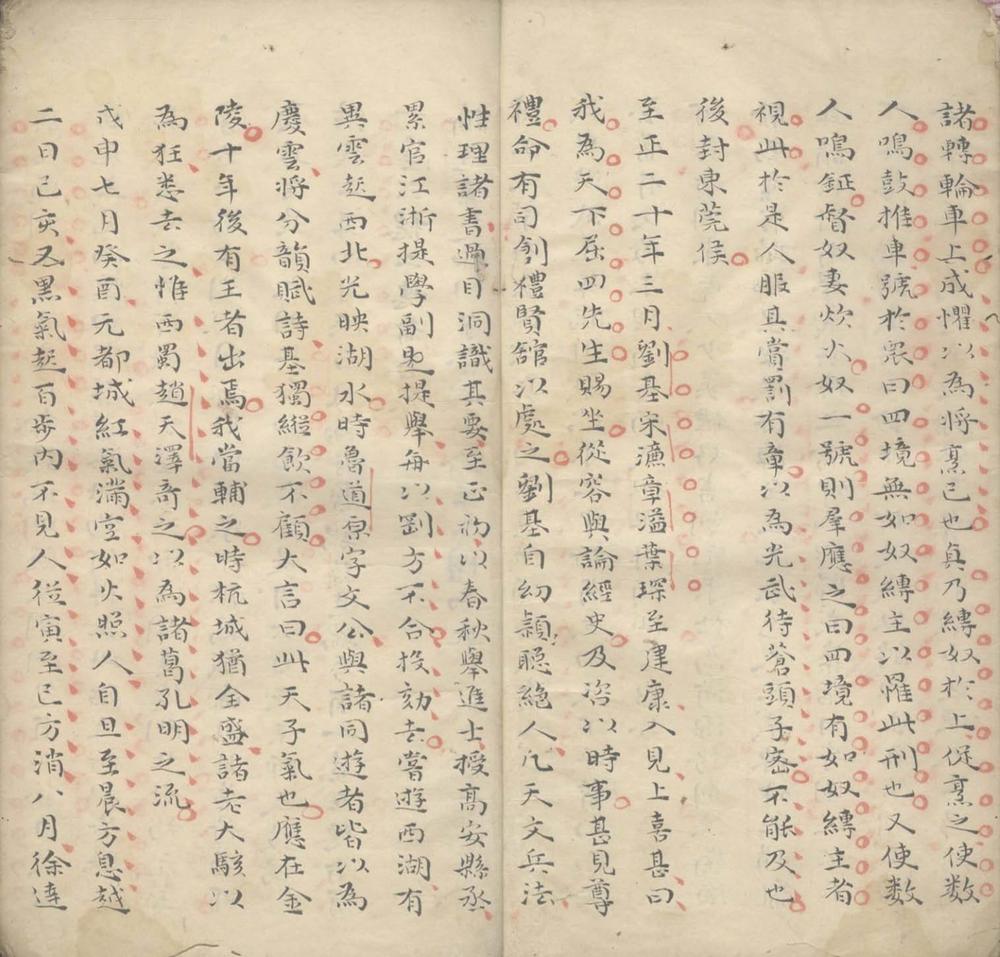 諸轉輪車上成懼以為將烹己也真乃縛奴於上促烹之使数
人鳴鼓推車號於衆曰四境無如奴縛主以罹此刑也又使数
人鳴鉦督奴妻炊火奴一號則羣應之曰四境有如奴縛主者
視此於是人服其賞罰有章以為光武待蒼頭子密不能及也
後封東莞侯
至正二十年三月劉基宋濂章溢葉琛至建康入見上喜甚曰
我為天下屈四先生賜坐從容與論經史及咨以時事甚見尊
禮命有司創禮賢舘以處之劉基自幼穎聰絶人凡天文兵法
性理諸書過目洞識其要至正初以春秋舉進士授高安縣丞
累官江浙提學副提舉每以剛方不合投劾去嘗遊西湖有
異雲起西北光映湖水時魯道原字文公與諸同遊者皆以為
慶雲将分韻賦詩基獨縱飲不顧大言曰此天子氣也應在金
陵十年後有王者出焉我當輔之時杭城猶全盛諸老大駭以
為狂悉去之惟西蜀趙天澤奇之以為諸葛孔明之流
戊申七月癸酉元都城紅氣滿空如火照人自旦至晨方息越
二日己亥又黑氣起百步内不見人從寅至巳方消八月徐達